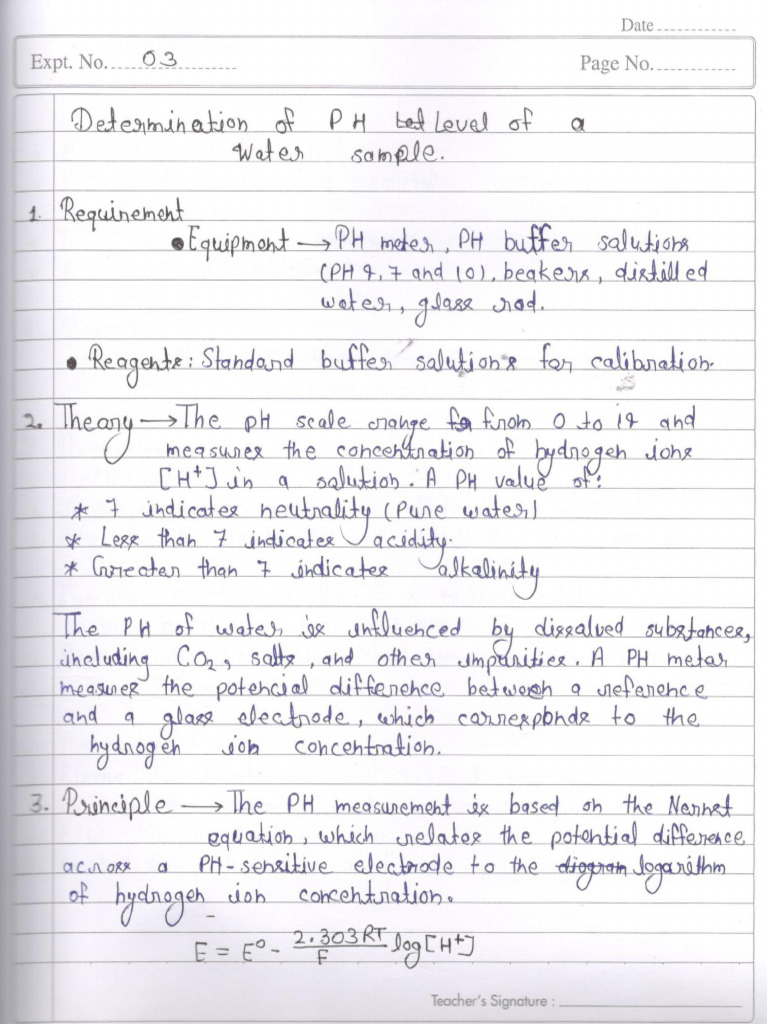 Date
Expt. No. 03
Page No.
Determination of PH Level of a
Water sample.
1. Requirement
• Equipment → PH meter, PH buffer salutions
(PH 4, 7 and 10), beakers, distilled
water, glass rod.
• Reagents: Standard buffer salutions for calibration.
2. Theory → The pH scale range from 0 to 14 and
measures the concentration of hydrogen ions
[H⁺] in a solution. A PH value of:
* 7 indicates neutrality (Pure water)
* Less than 7 indicates acidity.
* Greater than 7 indicates alkalinity
The PH of water is influenced by dissalved substances,
including CO₂, salts, and other impurities. A PH metar
measures the potencial difference between a reference
and a glass electrode, which carresponds to the
hydrogen ion concentration.
3. Principle → The PH measurement is based on the Nernst
equation, which relates the potential difference
across a PH-sensitive electrode to the logarithm
of hydrogen ion concentration.
E = E⁰ - 2.303RT/F log[H⁺]
Teacher's Signature :